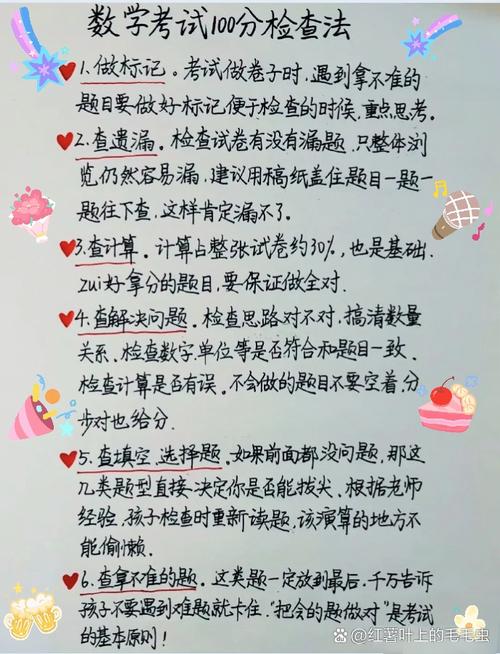 数学考试100分检查法
1.做标记。考试做卷子时,遇到拿不准的
题目要做好标记,便于检查的时候,重点思考。
2.查遗漏。检查试卷有没有漏题,只整体浏
览仍然容易漏,建议用稿纸盖住题目一题一
题往下查,这样肯定漏不了。
3.查计算。计算占整张试卷约30%,也是基础.
zui好拿分的题目,要保证做全对.
4.查解决问题。检查思路对不对,搞清数量
关系、检查数字、单位等是否符合和题目一致.
检查计算是否有误。不会做的题目不要空着,分
步对也给分.
5.查填空、选择题。如果前面都没问题,那这
几类题型直接决定你是否能拔尖、根据老师
经验,孩子检查时重新读题,该演算的地方不
能偷懒.
6.查拿不准的题。这类题一定放到最后,千万告诉
孩子不要遇到难题就卡住."把会的题做对"是考试
的基本原则!
@红薯叶上的毛毛虫